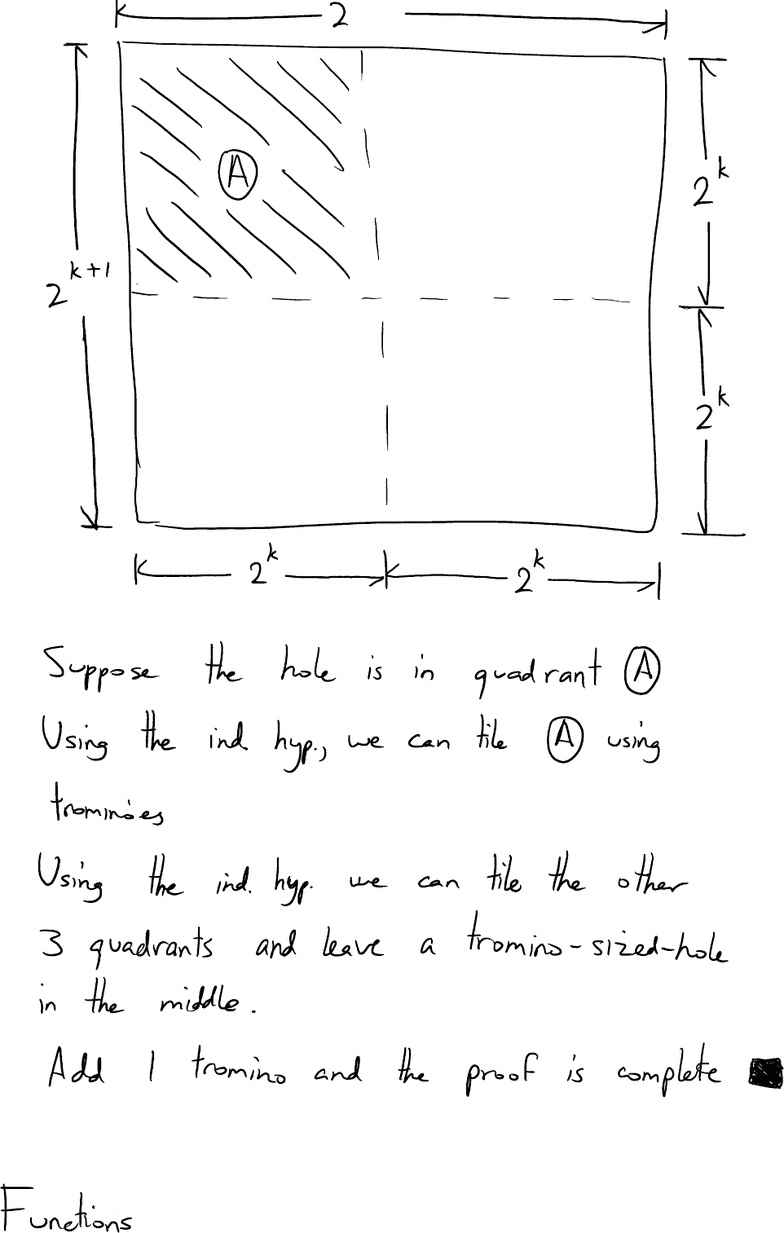 2
A
2^k
2^{k+1}
2^k
2^k
2^k
Suppose the hole is in quadrant Ⓐ
Using the ind. hyp., we can tile Ⓐ using
trominóes
Using the ind. hyp. we can tile the other
3 quadrants and leave a tromino-sized-hole
in the middle.
Add 1 tromino and the proof is complete ■
Functions